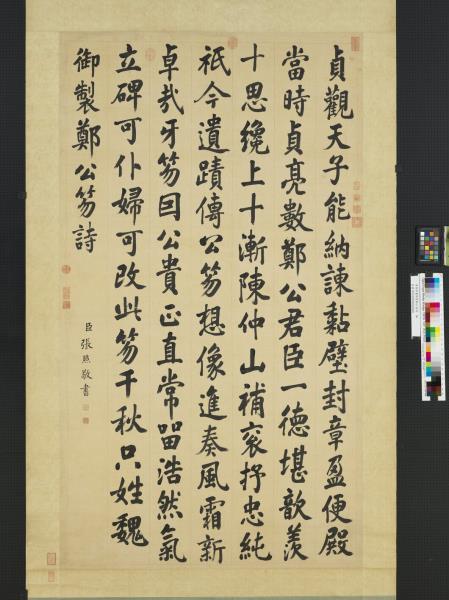 貞觀天子能納諫黏壁封章盈便殿
當時貞亮數鄭公君臣一德堪歆羨
十思纔上十漸陳仲山補衮抒忠純
祇今遺蹟傳公笏想像進奏風霜新
卓哉牙笏因公貴正直常留浩然氣
立碑可仆婦可改此笏千秋只姓魏
御製鄭公笏詩
臣張照敬書